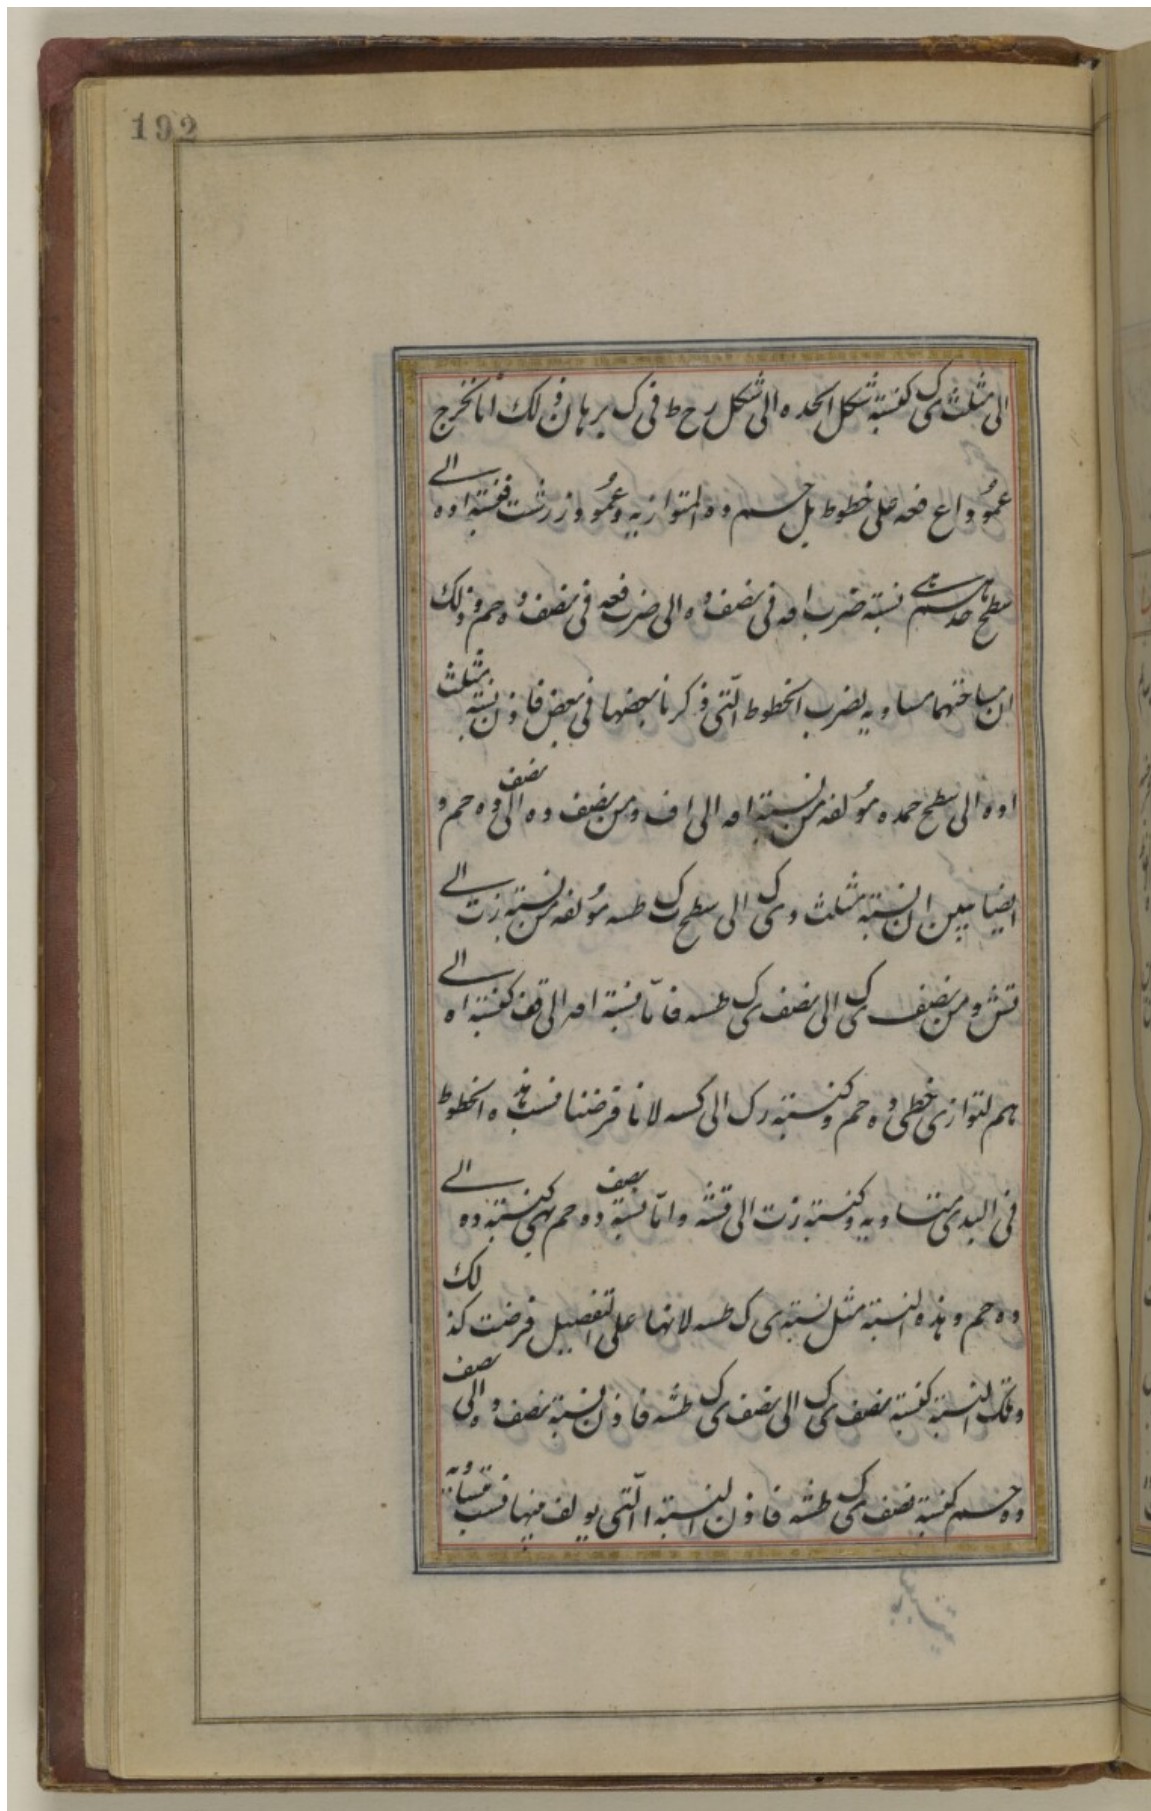 192
الى مثلث ى ك كنسبة شكل اٮحده الى شكل رح ط فى ك برهان ذلك انا نخرج
عمود اع فعه على خطوط بل حسم وه المتوازيه وعمود زرشت فنسبة اوه الى
سطح حده نسبة ضرب امه فى نصف وه الى ضرب فعه فى نصف وه حم وذلك
ان مساحتهما مساويه لضرب الخطوط التى ذكرنا بعضها فى بعض فاذن نسبة مثلث
اوه الى سطح حمده مؤلفه من نسبة امه الى اف ومن نصف وه الى نصف وه حم و
ايضا يبين ان نسبة مثلث وى ك الى سطح ك طسه مؤلفه من نسبة زت الى
قتش ومن نصف ى ك الى نصف ى ك طسه فاما نسبة امه الى قف كنسبة اه الى
ٮهم لتوازى خطى وه حم وكنسبة رك الى كسه لانا فرضنا نسب هذه الخطوط
فى البدى متساويه وكنسبة زت الى قتش واما نسبة نصف وه حم فهى كنسبة وه الى
وه حم وهذه النسبة مثل نسبة ى ك طسه لانها على التفصيل فرضت كذلك
وتلك النسبة كنسبة نصف ى ك الى نصف ى ك طشه فاذن نسبة نصف وه الى نصف
وه حسم كنسبة نصف ى ك طشه فاذن النسبة ا التى يولف منها نسب متساويه